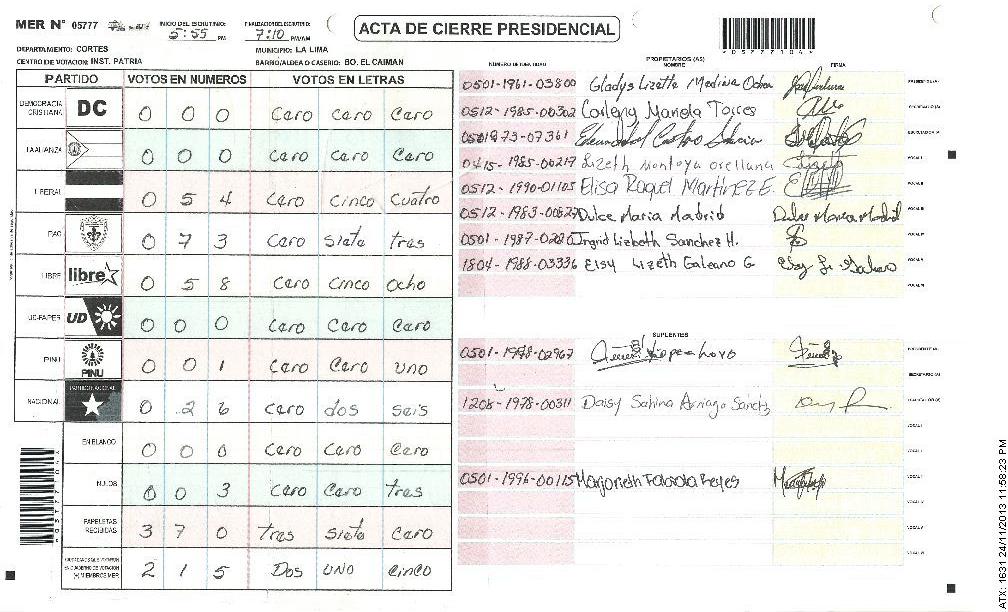 MER N° 05777 INICIO DEL ESCRUTINIO: 5:55 PM FINALIZACION DEL ESCRUTINIO: 7:10 PM/AM
ACTA DE CIERRE PRESIDENCIAL
DEPARTAMENTO: CORTES MUNICIPIO: LA LIMA
CENTRO DE VOTACION: INST. PATRIA BARRIO/ALDEA O CASERIO: BO. EL CAIMAN
PARTIDO VOTOS EN NUMEROS VOTOS EN LETRAS
DEMOCRACIA CRISTIANA DC 0 0 0 Cero Cero Cero
LA ALIANZA 0 0 0 Cero Cero Cero
LIBERAL 0 5 4 Cero Cinco Cuatro
PAC 0 7 3 Cero Siete tres
LIBRE libre 0 5 8 Cero Cinco Ocho
UD-FAPER UD 0 0 0 Cero Cero Cero
PINU PINU 0 0 1 Cero Cero uno
NACIONAL PARTIDO NACIONAL 0 2 6 Cero dos seis
EN BLANCO 0 0 0 Cero Cero Cero
NULOS 0 0 3 Cero Cero tres
PAPELETAS RECIBIDAS 3 7 0 tres Siete Cero
2 1 5 Dos uno Cinco
NUMERO DE IDENTIDAD PROPIETARIOS (AS) NOMBRE FIRMA
0501-1961-03800 Gladys Lizette Medina
0512-1985-00302 Torres
Castro
0415-1985-00217 Lizeth Montoya Orellana
0512-1990-01105 Elisa Raquel Martinez E.
0512-1983-00827 Dulce Maria Madrid Dulce Maria Madrid
0501-1987- Ingrid Lizboth Sanchez H.
1804-1988-03336 Elsy Lizeth Galeano G
SUPLENTES
0501-1978-02967
1208-1978-00311 Daisy Sahina
0501-1996-00115 Reyes
*05777104*
ATX: 1631 24/11/2013 11:58:23 PM